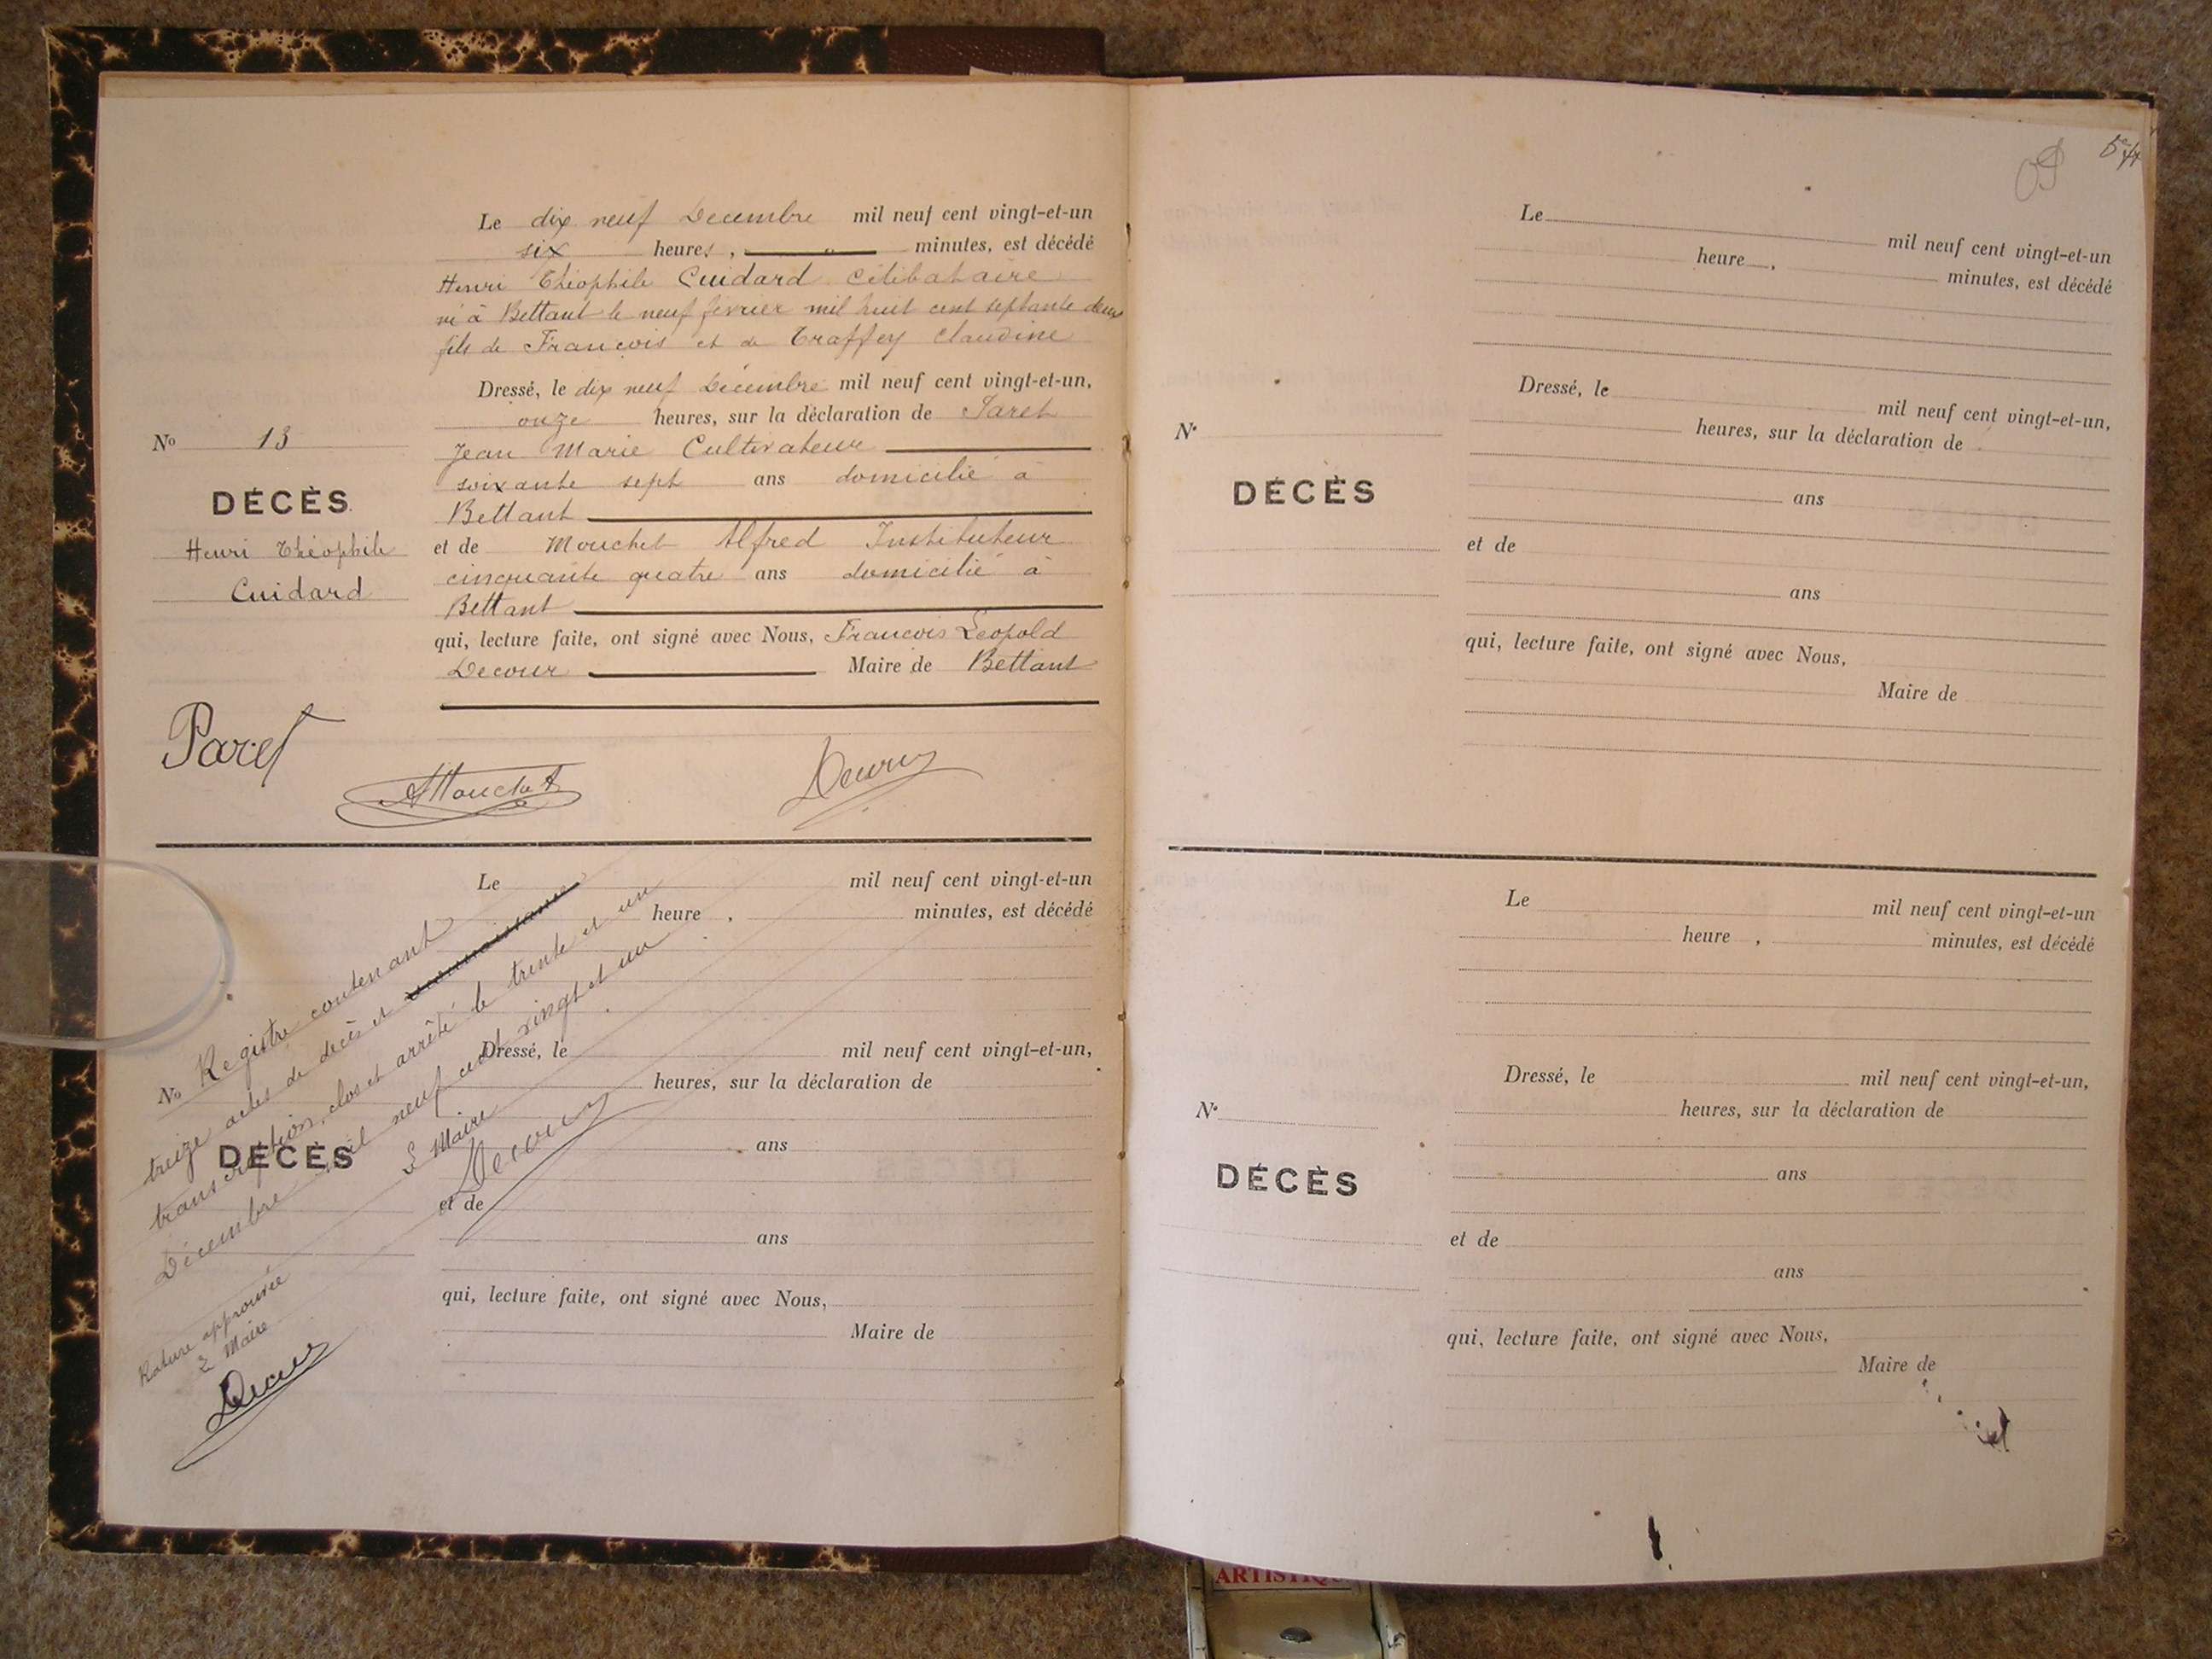 Le dix neuf Decembre mil neuf cent vingt-et-un
six heures, minutes, est décédé
Henri Théophile Cuidard célibataire
né à Bettant le neuf février mil huit cent septante deux
fils de François et de Traffey Claudine
Dressé, le dix neuf Décembre mil neuf cent vingt-et-un,
onze heures, sur la déclaration de Paret
Jean Marie Cultivateur
soixante sept ans domicilié à
Bettant
et de Mouchet Alfred Instituteur
cinquante quatre ans domicilié à
Bettant
qui, lecture faite, ont signé avec Nous, François Léopold
Decour Maire de Bettant
No 13
DÉCÈS
Henri Théophile
Cuidard
Paret
AMouchet
Decour
Le mil neuf cent vingt-et-un
heure , minutes, est décédé
Dressé, le mil neuf cent vingt-et-un,
heures, sur la déclaration de
ans
et de
ans
qui, lecture faite, ont signé avec Nous,
Maire de
No
DÉCÈS
Registre contenant
treize actes de décès et
transcription, clos et arrêté le trente et un
Décembre mil neuf cent vingt et un
L Maire
Decour
Rature approuvée
L Maire
Decour
Le mil neuf cent vingt-et-un
heure , minutes, est décédé
Dressé, le mil neuf cent vingt-et-un,
heures, sur la déclaration de
ans
et de
ans
qui, lecture faite, ont signé avec Nous,
Maire de
No
DÉCÈS
Le mil neuf cent vingt-et-un
heure , minutes, est décédé
Dressé, le mil neuf cent vingt-et-un,
heures, sur la déclaration de
ans
et de
ans
qui, lecture faite, ont signé avec Nous,
Maire de
No
DÉCÈS